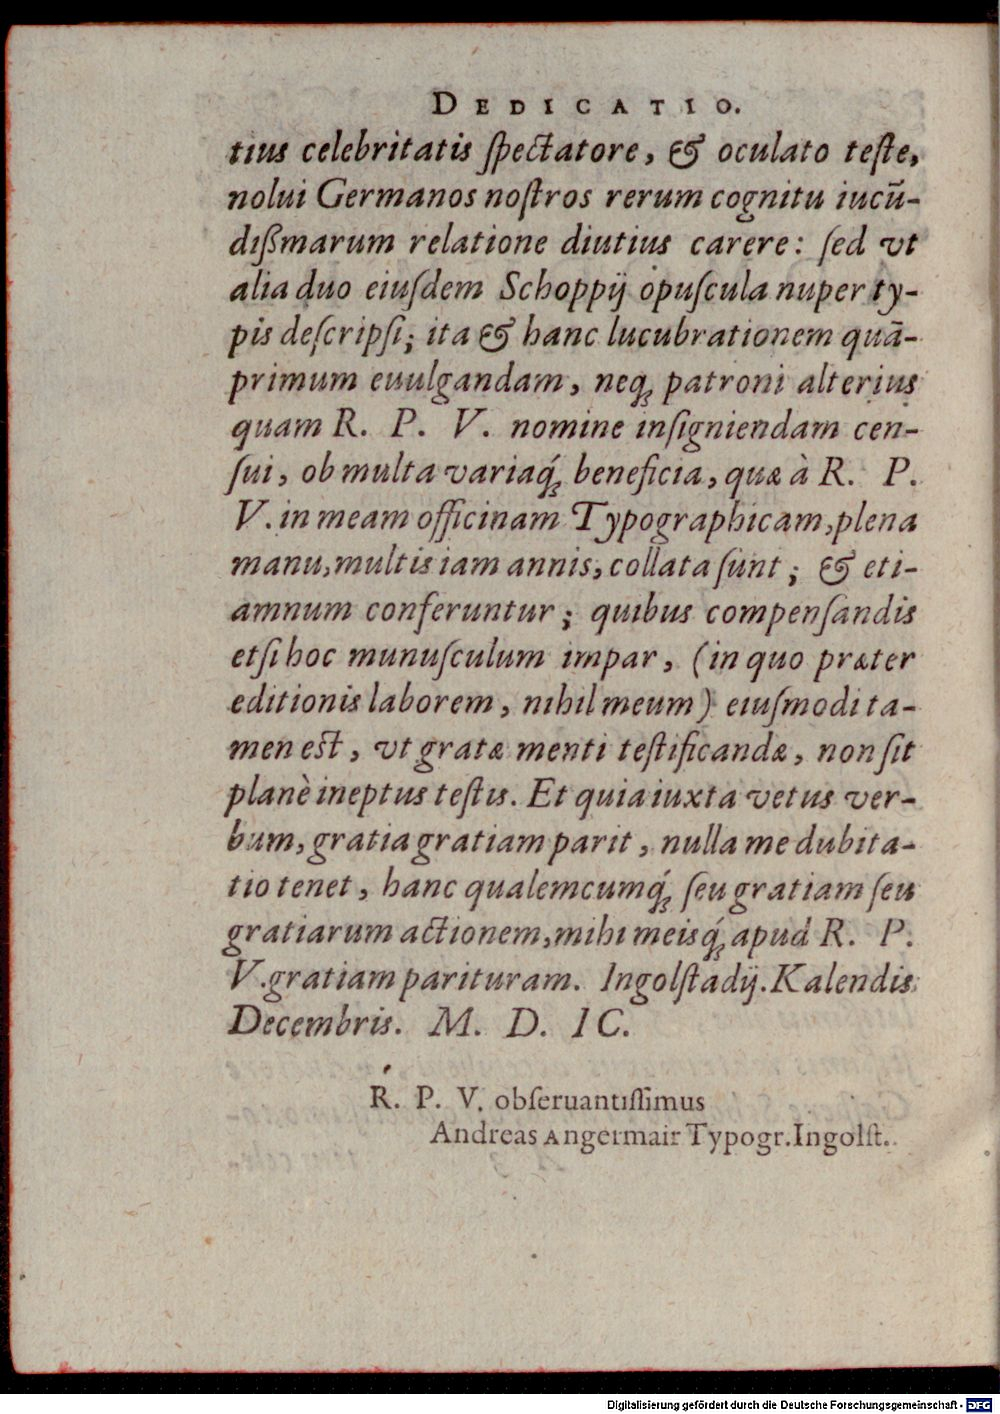 DEDICATIO.
tius celebritatis ſpectatore, & oculato teſte,
nolui Germanos noſtros rerum cognitu iucũ-
dißmarum relatione diutius carere: ſed vt
alia duo eiuſdem Schoppij opuſcula nuper ty-
pis deſcripſi; ita & hanc lucubrationem quā-
primum euulgandam, neq; patroni alterius
quam R. P. V. nomine inſigniendam cen-
ſui, ob multa variaq́; beneficia, quæ à R. P.
V. in meam officinam Typographicam, plena
manu, multis iam annis, collata ſunt; & eti-
amnum conferuntur; quibus compenſandis
etſi hoc munuſculum impar, (in quo præter
editionis laborem, nihil meum) eiuſmodi ta-
men est, vt gratæ menti teſtificandæ, non ſit
planè ineptus teſtis. Et quia iuxta vetus ver-
bum, gratia gratiam parit, nulla me dubita-
tio tenet, hanc qualemcumq́; ſeu gratiam ſeu
gratiarum actionem, mihi meisq́; apud R. P.
V. gratiam parituram. Ingolſtadij. Kalendis
Decembris. M. D. IC.
R. P. V. obſeruantiſſimus
Andreas Angermair Typogr. Ingolſt.
Digitalisierung gefördert durch die Deutsche Forschungsgemeinschaft - DFG